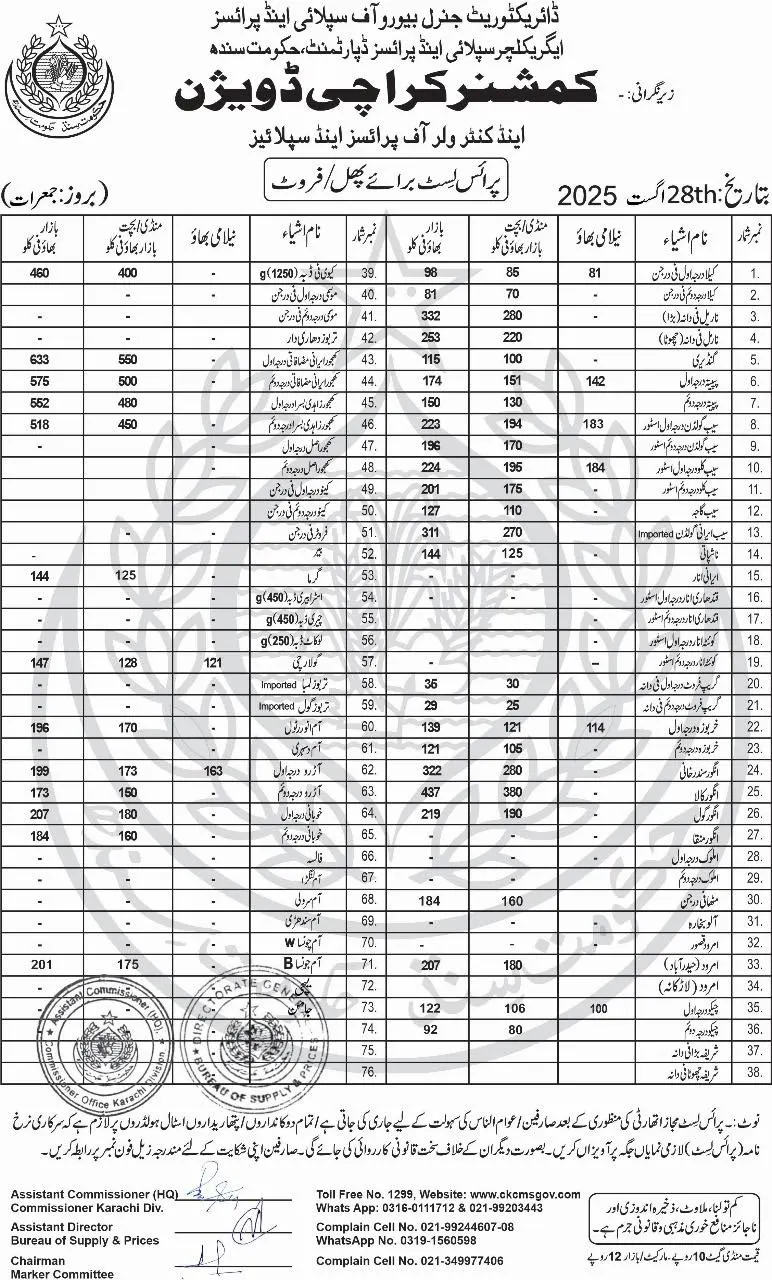 ڈائریکٹوریٹ جنرل بیورو آف سپلائی اینڈ پرائسز
ایگریکلچر سپلائی اینڈ پرائسز ڈپارٹمنٹ، حکومت سندھ
زیر نگرانی:- کمشنر کراچی ڈویژن
اینڈ کنٹرولر آف پرائسز اینڈ سپلائیز
پرائس لسٹ برائے پھل/فروٹ
بتاریخ: 28th اگست 2025 (بروز: جمعرات)
نمبر شمار نام اشیاء نیلامی بھاؤ منڈی/بچت بازار بھاؤ فی کلو بازار بھاؤ فی کلو
1. کیلا درجہ اول فی درجن 81 85 98
2. کیلا درجہ دوئم فی درجن - 70 81
3. ناریل فی دانہ (بڑا) - 280 332
4. ناریل فی دانہ (چھوٹا) - 220 253
5. گنڈیری - 100 115
6. پپیتہ درجہ اول 142 151 174
7. پپیتہ درجہ دوئم - 130 150
8. سیب گولڈن درجہ اول اسٹور 183 194 223
9. سیب گولڈن درجہ دوئم اسٹور - 170 196
10. سیب کلو درجہ اول اسٹور 184 195 224
11. سیب کلو درجہ دوئم اسٹور - 175 201
12. سیب گاجہ - 110 127
13. سیب ایرانی گولڈن Imported - 270 311
14. ناشپاتی - 125 144
15. ایرانی انار - - -
16. قندھاری انار درجہ اول اسٹور - - -
17. قندھاری انار درجہ دوئم اسٹور - - -
18. کوئٹہ انار درجہ اول اسٹور
19. کوئٹہ انار درجہ دوئم اسٹور - - -
20. گریپ فروٹ درجہ اول فی دانہ - 30 35
21. گریپ فروٹ درجہ دوئم فی دانہ - 25 29
22. خربوزہ درجہ اول 114 121 139
23. خربوزہ درجہ دوئم - 105 121
24. انگور سندرخانی - 280 322
25. انگور کالا - 380 437
26. انگور گول - 190 219
27. انگور منقا - - -
28. املوک درجہ اول - -
29. املوک درجہ دوئم - -
30. مٹھا فی درجن - 160 184
31. آلو بخارہ - -
32. امرود قصور - - -
33. امرود (حیدرآباد) - 180 207
34. امرود (لاڑکانہ) - -
35. چیکو درجہ اول 100 106 122
36. چیکو درجہ دوئم - 80 92
37. شریفہ بڑا فی دانہ - -
38. شریفہ چھوٹا فی دانہ - -
نمبر شمار نام اشیاء نیلامی بھاؤ منڈی/بچت بازار بھاؤ فی کلو بازار بھاؤ فی کلو
39. کیوی فی ڈبہ (1250)g - 400 460
40. موسمی درجہ اول فی درجن - - -
41. موسمی درجہ دوئم فی درجن - -
42. تربوز دھاری دار - -
43. کھجور ایرانی مضافاتی درجہ اول - 550 633
44. کھجور ایرانی مضافاتی درجہ دوئم - 500 575
45. کھجور زاہدی بسرا درجہ اول - 480 552
46. کھجور زاہدی بسرا درجہ دوئم - 450 518
47. کھجور اصل درجہ اول - - -
48. کھجور اصل درجہ دوئم - - -
49. کینو درجہ اول فی درجن
50. کینو درجہ دوئم فی درجن
51. فروٹر فی درجن - -
52. بیر - -
53. گرما - 125 144
54. اسٹرابیری ڈبہ (450)g - - -
55. چیری ڈبہ (450)g - -
56. لوکاٹ ڈبہ (250)g - -
57. گولارچی 121 128 147
58. تربوز لمبا Imported - - -
59. تربوز گول Imported - - -
60. آم انور رٹول - 170 196
61. آم دسہری - - -
62. آڑو درجہ اول 163 173 199
63. آڑو درجہ دوئم - 150 173
64. خوبانی درجہ اول - 180 207
65. خوبانی درجہ دوئم - 160 184
66. فالسہ - - -
67. آم لنگڑا - - -
68. آم سرولی - - -
69. آم سندھڑی - - -
70. آم چونسا W - - -
71. آم چونسا B - 175 201
72. لیچی
73. جامن
74.
75.
76.
Assistant Commissioner (HQ). Commissioner Office Karachi Division
DIRECTORATE GENERAL BUREAU OF SUPPLY & PRICES
نوٹ:- پرائس لسٹ مجاز اتھارٹی کی منظوری کے بعد صارفین/عوام الناس کی سہولت کے لیے جاری کی جاتی ہے/تمام دوکانداروں/پتھاریداروں اسٹال ہولڈروں پر لازم ہے کہ سرکاری نرخ
نامہ (پرائس لسٹ) لازمی نمایاں جگہ پر آویزاں کریں۔ بصورت دیگر ان کے خلاف سخت قانونی کارروائی کی جائے گی۔ صارفین اپنی شکایت کے لئے مندرجہ ذیل فون نمبر پر رابطہ کریں۔
Assistant Commissioner (HQ)
Commissioner Karachi Div.
Assistant Director
Bureau of Supply & Prices
Chairman
Marker Committee
Toll Free No. 1299, Website: www.ckcmsgov.com
Whats App: 0316-0111712 & 021-99203443
Complain Cell No. 021-99244607-08
WhatsApp No. 0319-1560598
Complain Cell No. 021-349977406
کم تولنا، ملاوٹ، ذخیرہ اندوزی اور
ناجائز منافع خوری مذہبی و قانونی جرم ہے۔
قیمت منڈی گیٹ 10 روپے، مارکیٹ/بازار 12 روپے